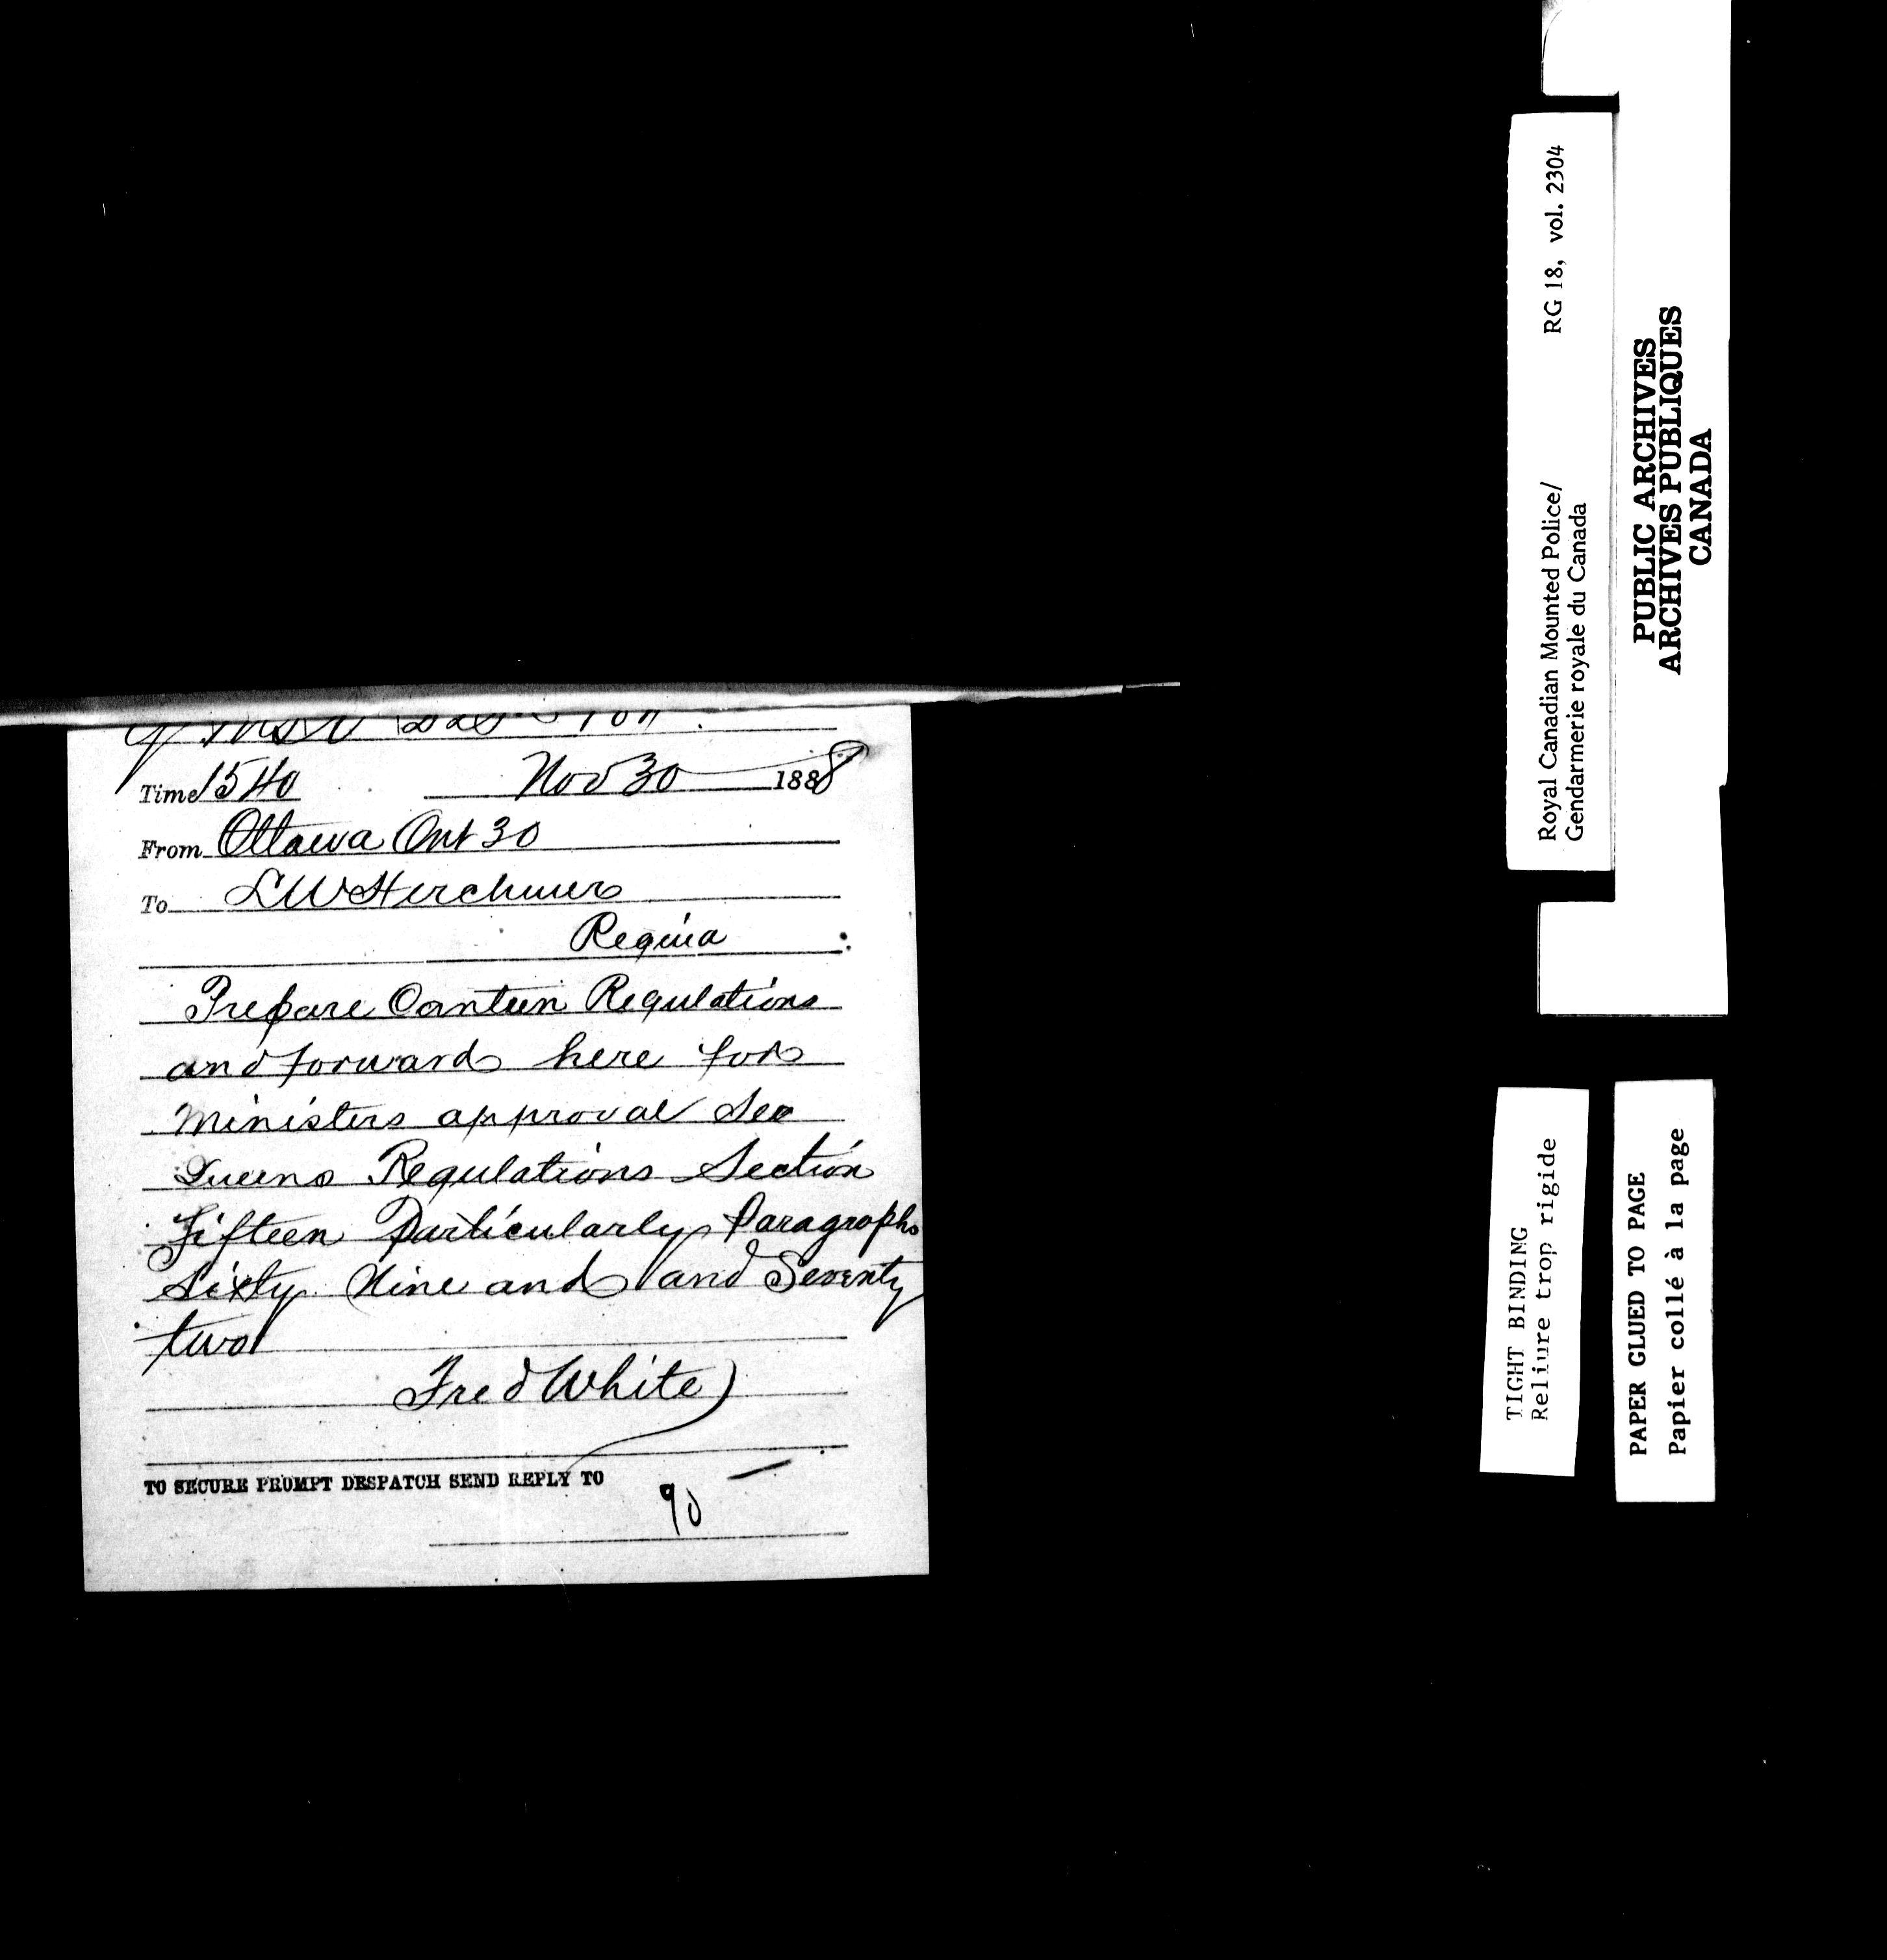 Time 1540 Nov 30 1888
From Ottawa Ont 30
To L W Herchmer
Regina
Prepare Canteen Regulations
and forward here for
Ministers approval See
Queens Regulations Section
Fifteen Particularly Paragraphs
Sixty Nine and and Seventy
two
Fred White
TO SECURE PROMPT DESPATCH SEND REPLY TO
90
Royal Canadian Mounted Police/ RG 18, vol. 2304
Gendarmerie royale du Canada
PUBLIC ARCHIVES
ARCHIVES PUBLIQUES
CANADA
TIGHT BINDING
Reliure trop rigide
PAPER GLUED TO PAGE
Papier collé à la page